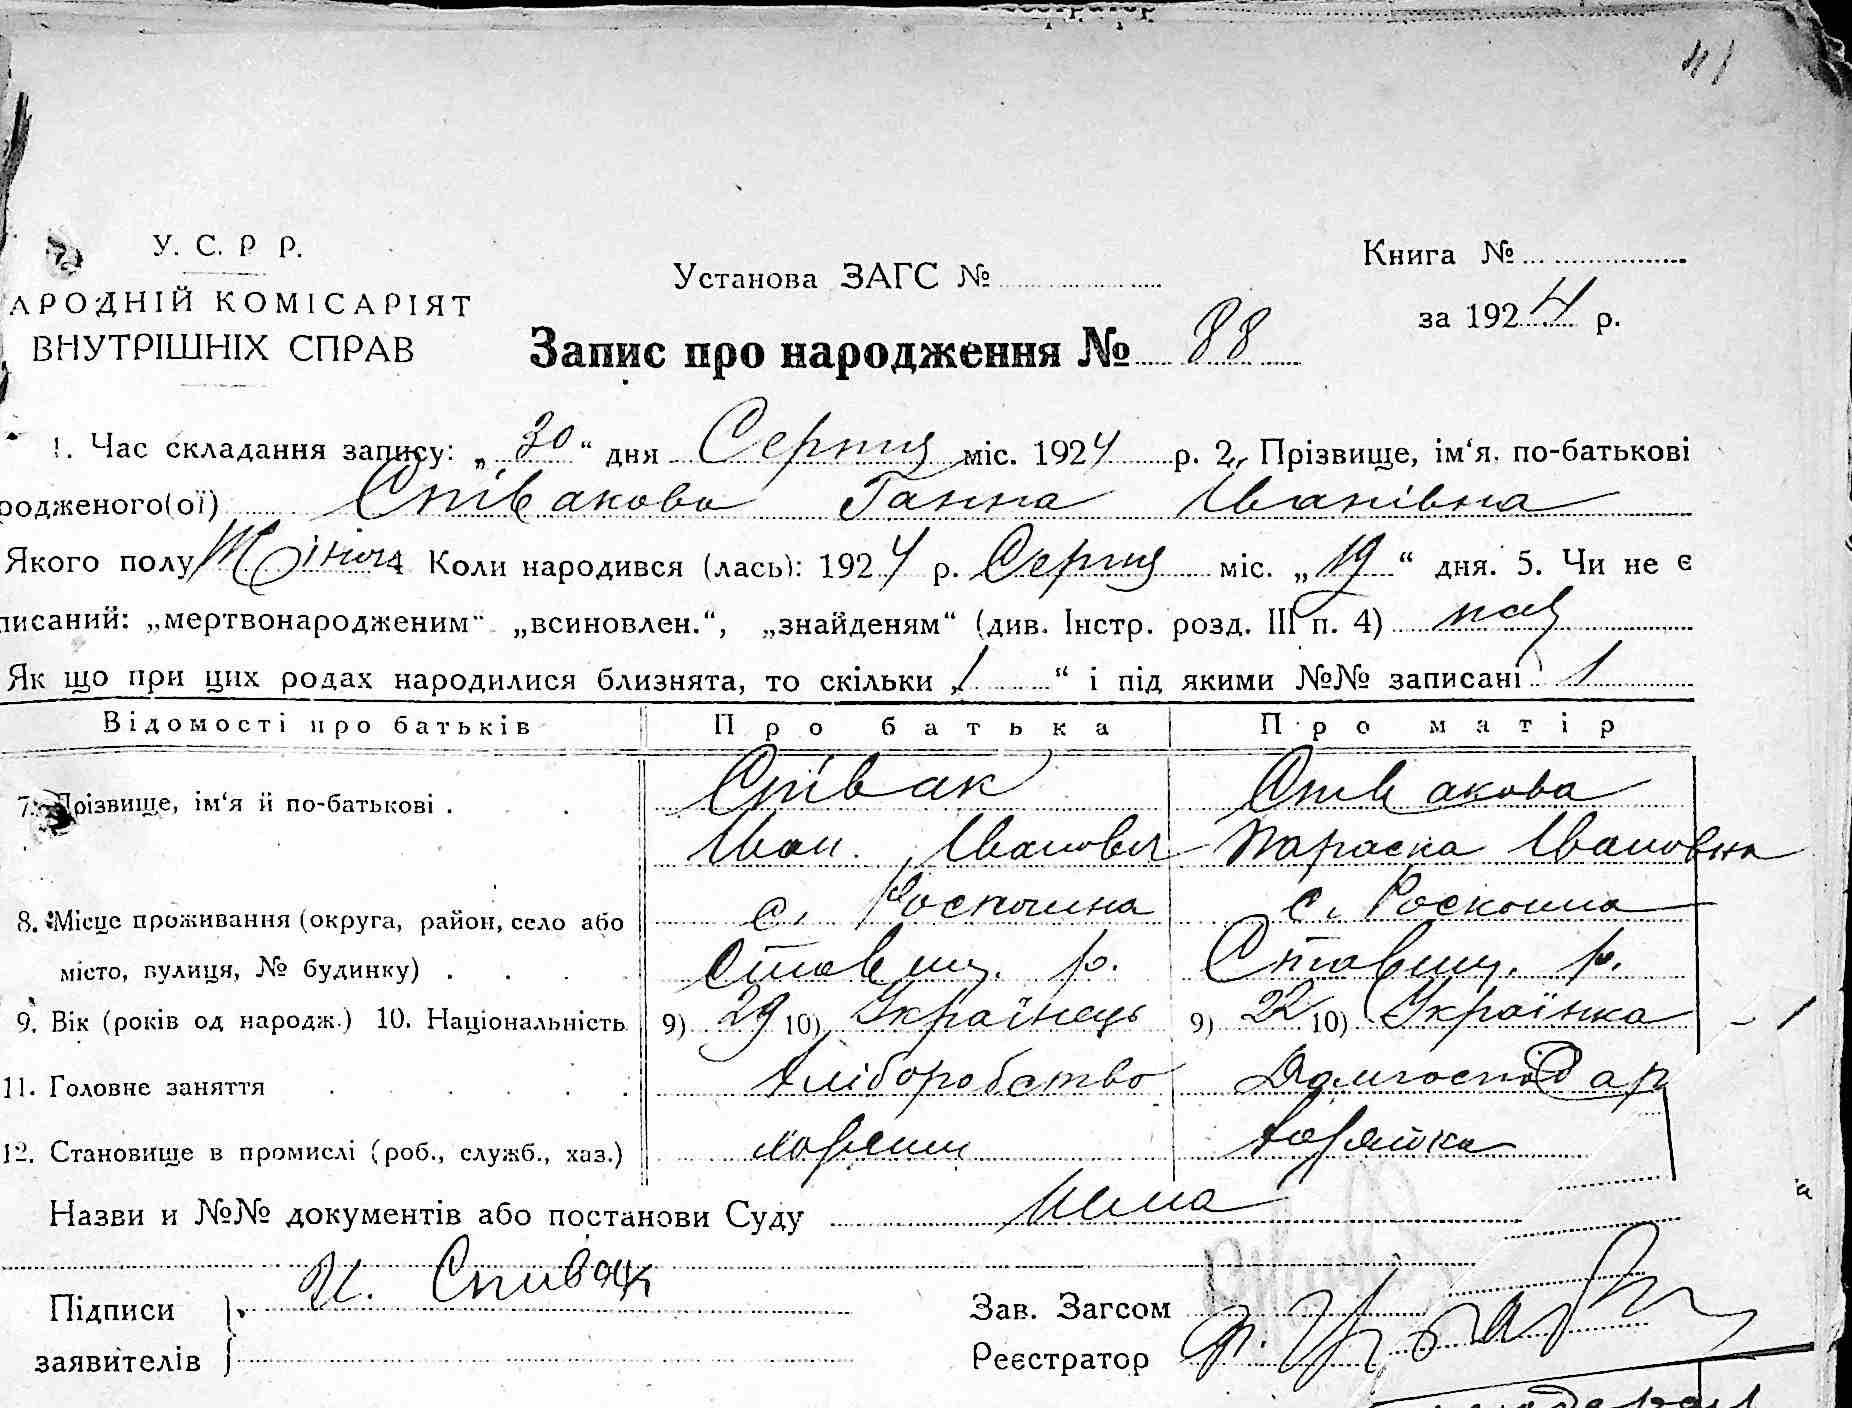 41
У. С. Р Р.
АРОДНІЙ КОМІСАРІЯТ
ВНУТРІШНІХ СПРАВ
Установа ЗАГС №
Книга №
за 1924 р.
Запис про народження № 88
1. Час складання запису: „30“ дня Серпня міс. 1924 р. 2. Прізвище, ім‘я. по-батькові
родженого(ої) Співакова Ганна Іванівна
Якого полу Жіноч 4 Коли народився (лась): 1924 р. Серпня міс. „19“ дня. 5. Чи не є
писаний: „мертвонародженим“ „всиновлен.“, „знайденям“ (див. Інстр. розд. III п. 4)
Як що при цих родах народилися близнята, то скільки „1“ і під якими №№ записані 1
Відомості про батьків Про батька Про матір
7. Прізвище, ім‘я й по-батькові . Співак Співакова
Іван Іванович Параска Івановна
8. Місце проживання (округа, район, село або с. Роскошна с. Роскошна
місто, вулиця, № будинку) . Ставищ. р. Ставищ. р.
9. Вік (років од народж.) 10. Національність 9) 29 10) Українець 9) 22 10) Українка – 1
11. Головне заняття Хліборобство Домгосподар
12. Становище в промислі (роб., служб., хаз.)
Назви и №№ документів або постанови Суду Нема
Підписи И. Спивак Зав. Загсом
заявителів Реєстратор